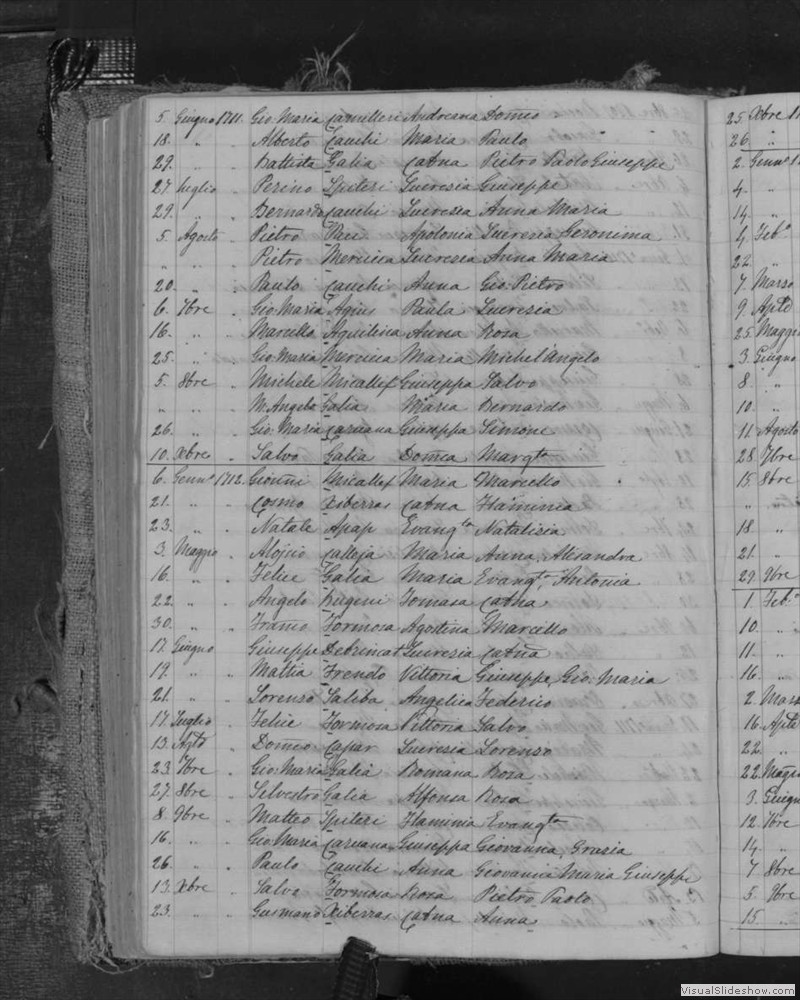 5. Giugno 1711. Gio: Maria Camilleri Andreana Domco
18. " " Alberto Cauchi Maria Paulo
29. " " Battista Galia Catna Pietro Paolo Giuseppe
27. Luglio " Perino Spiteri Lucresia Giuseppe
29. " " Bernardo Cauchi Lucresia Anna Maria
5. Agosto " Pietro Apolonia Lucresia Geronima
" " " Pietro Mercieca Lucresia Anna Maria
20. " " Paulo Cauchi Anna Gio: Pietro
6. 7bre " Gio: Maria Agius Paula Lucresia
16. " " Marcello Aquilina Anna Rosa
25. " " Gio: Maria Mercieca Maria Michel'Angelo
5. 8bre " Michele Micallef Giuseppa Salvo
" " " M. Angelo Galia Maria Bernardo
26. " " Gio: Maria Caruana Giuseppa Simone
10. Xbre " Salvo Galia Domca Margta
6. Gennro 1712. Gionni Micallef Maria Marcello
21. " " Cosmo Xiberras Catna Flaminia
23. " " Natale Apap Evangta Natalisia
3. Maggio " Aloisio Calleja Maria Anna, Alesandra
16. " " Felice Galia Maria Evangta, Antonia
22. " " Angelo Bugeni Tomasa Catna
30. " " Franco Formosa Agostina Marcello
17. Giugno Giuseppe Debrincat Lucresia Catna
19. " " Mattia Frendo Vittoria Giuseppe, Gio: Maria
21. " " Lorenso Saliba Angelica Federico
17. Luglio " Felice Formosa Vittoria Salvo
13. Agto " Domco Capar Lucresia Lorenso
23. 7bre " Gio: Maria Galia Romana Rosa
27. 8bre " Silvestro Galia Alfonsa Rosa
8. 9bre " Matteo Spiteri Flaminia Evangta
16. " " Gio: Maria Caruana Giuseppa Giovanna, Grasia
26. " " Paulo Cauchi Anna Giovanni Maria Giuseppe
13. Xbre " Salvo Formosa Rosa Pietro Paolo
23. " " Gusmano Xiberras Catna Anna
25. Xbre
26. "
2. Genno
4. "
14. "
4. Febo
22. "
7. Marso
9. Aple
25. Maggio
3. Giugno
8. "
10. "
11. Agosto
28. 7bre
15. 8bre
" "
18. "
21. "
29. 9bre
1. Febo
10. "
11. "
16. "
2. Mars
16. Aple
22. "
22. Maggio
3. Giugno
12. 7bre
14. "
7. 8bre
5. 9bre
15. "
VisualSlideshow.com